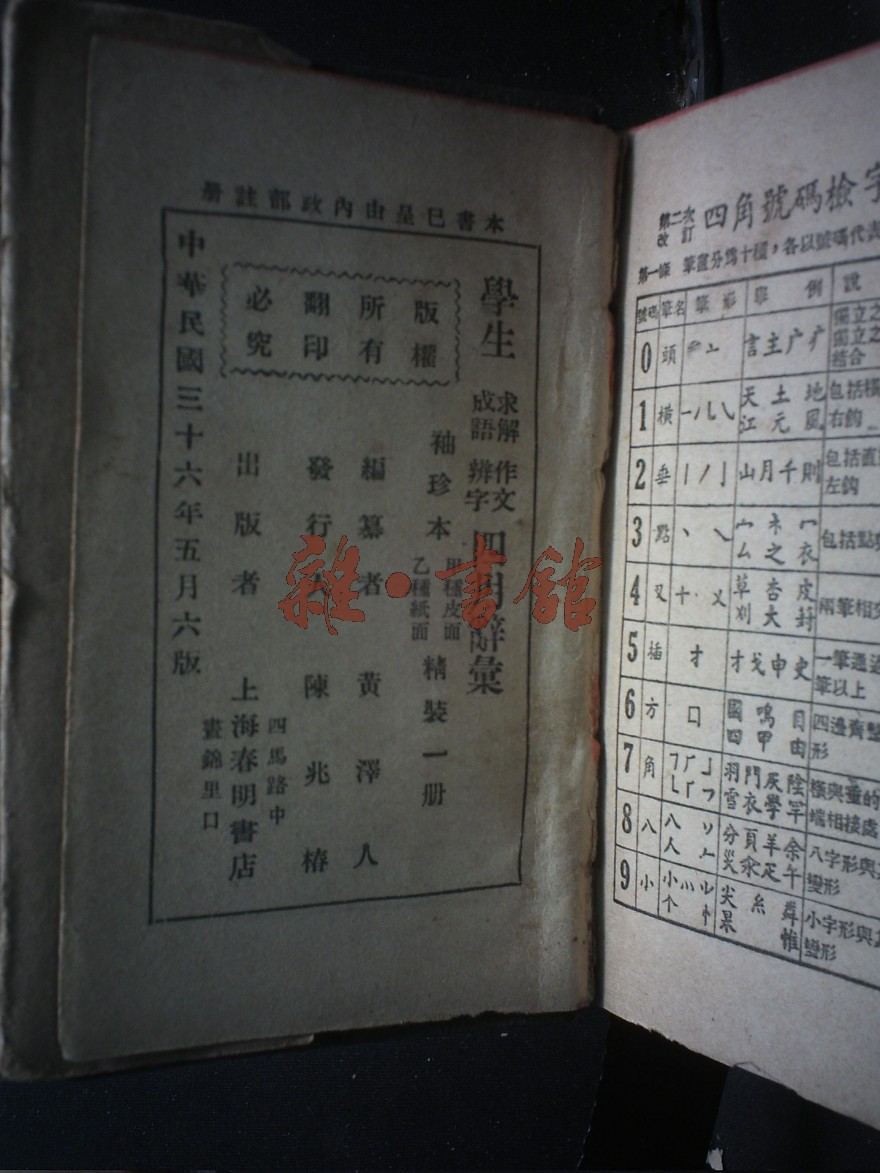 本書已呈由內政部註册
學生
求解 作文
成語 辨字
四用辭彙
袖珍本
甲種皮面
乙種紙面
精裝一册
版權
所有
翻印
必究
編纂者 黃澤人
發行人 陳兆椿
出版者 上海春明書店
四馬路中
晝錦里口
中華民國三十六年五月六版
雜·書館
第二次
改訂
四角號碼檢字
第一條 筆畫分爲十種，各以號碼代表
號碼 筆名 筆形 舉例 說
0 頭 亠 言主广疒 獨立之 獨立之 結合
1 橫 天土地江元風 包括橫 右鈎
2 垂 山月千則 包括直 左鈎
3 點 宀 冖 厶之衣 包括點
4 叉 十 乂 草杏皮刈大封 兩筆相交
5 插 扌 才戈申史 一筆通過 筆以上
6 方 口 國鳴目四甲由 四邊齊整 形
7 角 羽門灰陰雪衣學罕 橫與垂的 端相接處
8 八 八 人 分頁羊余災汆疋午 八字形與其 變形
9 小 小 尖糸舞杲惟 小字形與其 變形